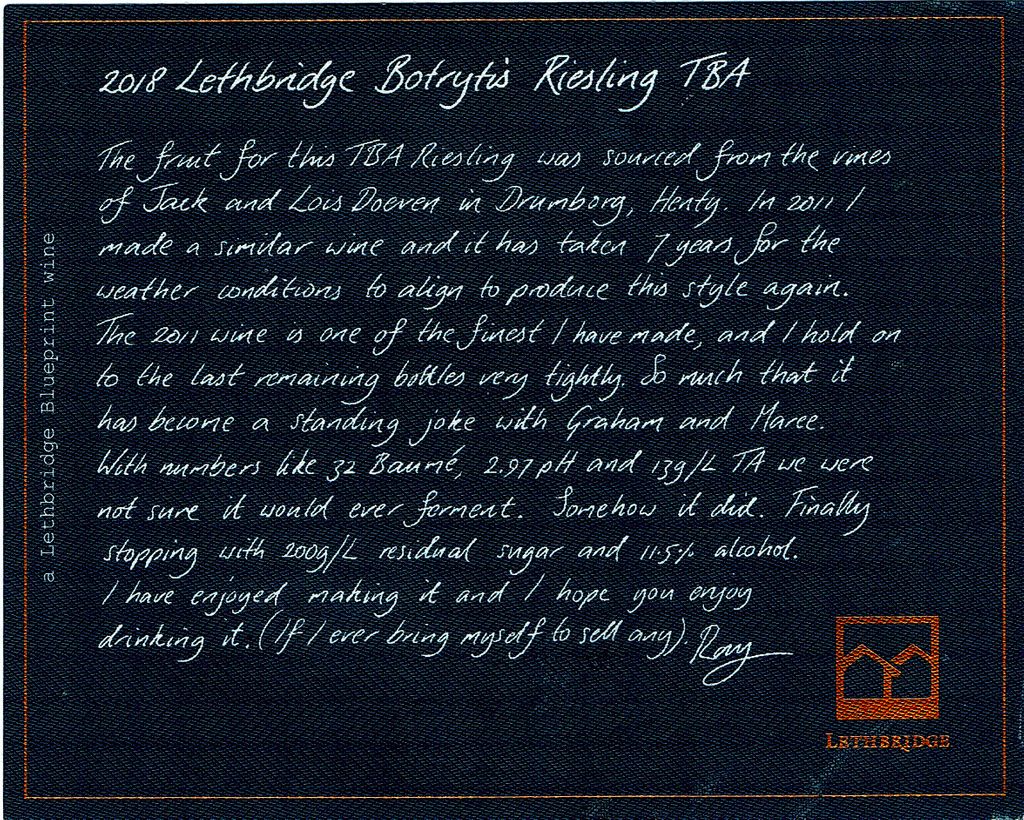 2018 Lethbridge Botrytis Riesling TBA
The fruit for this TBA Riesling was sourced from the vines
of Jack and Lois Doeven in Drumborg, Henty. In 2011 I
made a similar wine and it has taken 7 years for the
weather conditions to align to produce this style again.
The 2011 wine is one of the finest I have made, and I hold on
to the last remaining bottles very tightly. So much that it
has become a standing joke with Graham and Maree.
With numbers like 32 Baumé, 2.97pH and 13g/L TA we were
not sure it would ever ferment. Somehow it did. Finally
stopping with 200g/L residual sugar and 11.5% alcohol.
I have enjoyed making it and I hope you enjoy
drinking it. (If I ever bring myself to sell any). Ray
a Lethbridge Blueprint wine
LETHBRIDGE